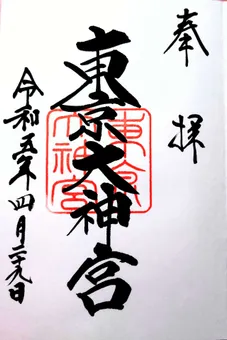 奉拝
東京大神宮
令和五年四月二十九日
東京大神宮